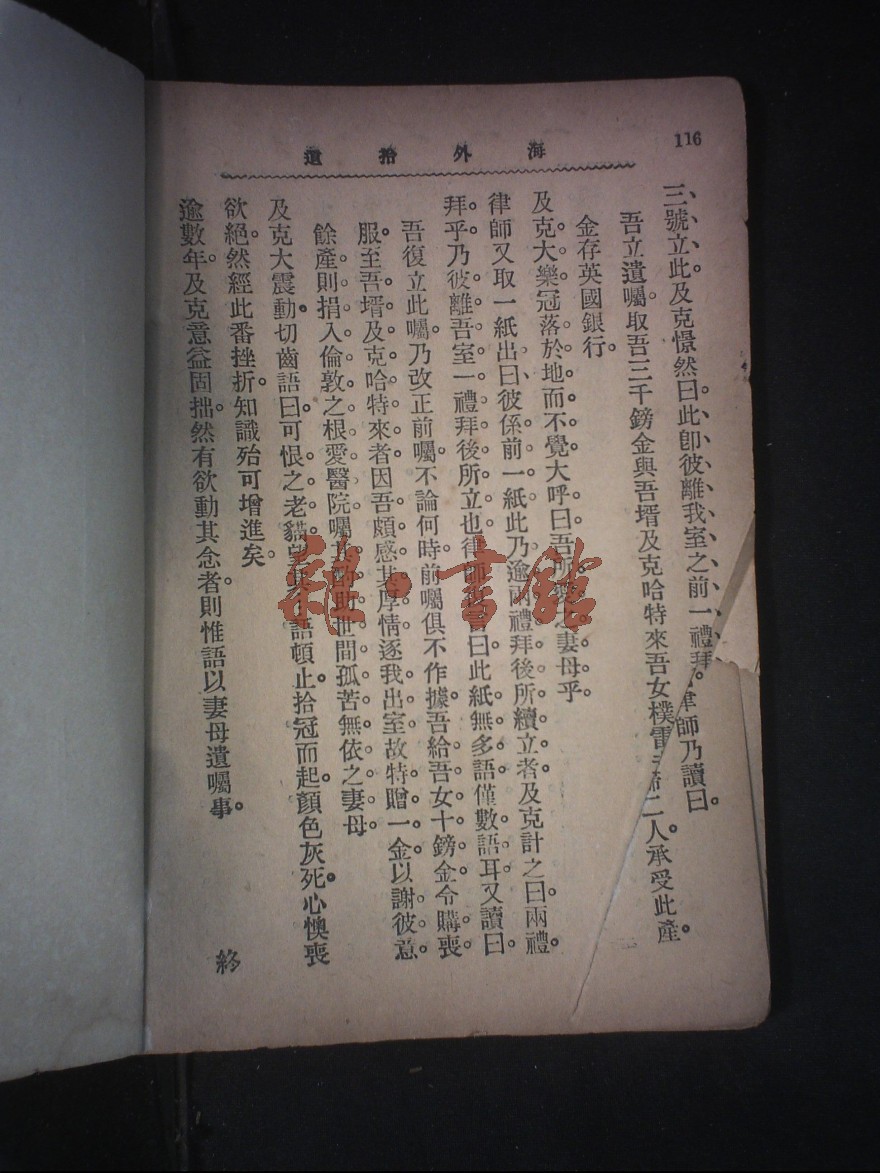 116
海外拾遺
三號立此。及克憬然曰。此卽彼離我室之前一禮拜。律師乃讀曰。
吾立遺囑。取吾三千鎊金與吾壻及克哈特來吾女樸雷二人。承受此產。
金存英國銀行。
及克大樂冠落於地而不覺大呼曰。吾所妻母乎。
律師又取一紙出曰。彼係前一紙此乃逾兩禮拜後所續立者。及克計之曰。兩禮。
拜乎。乃彼離吾室一禮拜後所立也。律師曰。此紙無多語。僅數語耳。又讀曰。
吾復立此囑。乃改正前囑。不論何時。前囑俱不作據。吾給吾女十鎊金。令購喪。
服。至吾壻及克哈特來者。因吾頗感其厚情。逐我出室。故特贈一金。以謝彼意。
餘產則捐入倫敦之根愛醫院。囑其助世間孤苦無依之妻母。
及克大震動。切齒語曰。可恨之老貓語頓止。拾冠而起。顏色灰死。心懊喪
欲絕。然經此番挫折。知識殆可增進矣。
逾數年。及克意益固拙。然有欲動其念者。則惟語以妻母遺囑事。
終
雜·書館